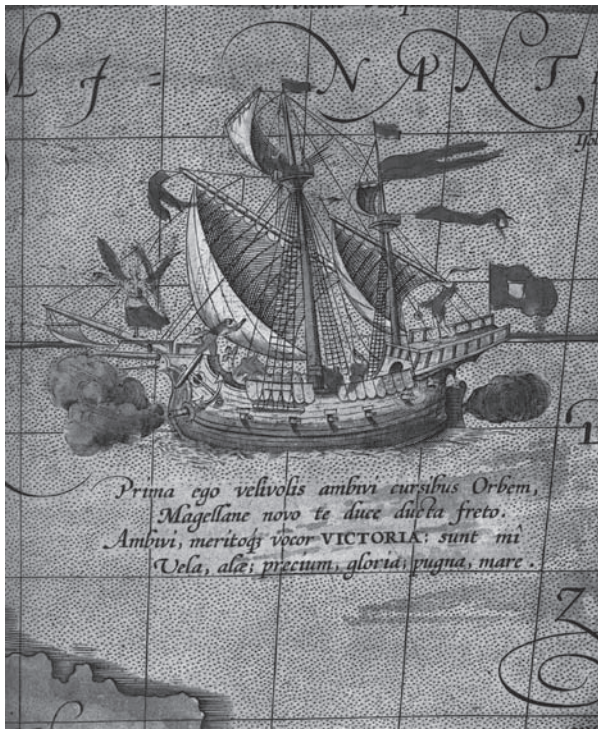 M J - N A N T
Prima ego velivolis ambivi cursibus Orbem,
Magellane novo te duce ducta freto.
Ambivi, meritoq; vocor VICTORIA: sunt mî
Vela, alæ; precium, gloria; pugna, mare.
Z